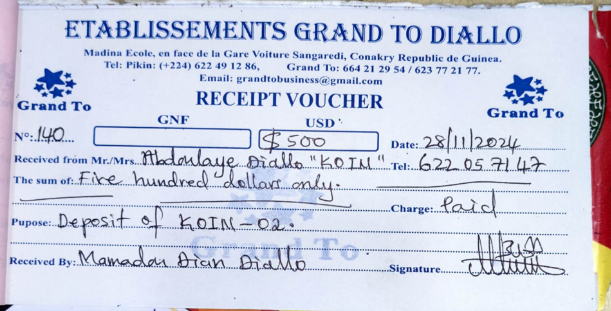 ETABLISSEMENTS GRAND TO DIALLO
Madina Ecole, en face de la Gare Voiture Sangaredi, Conakry Republic de Guinea.
Tel: Pikin: (+224) 622 49 12 86, Grand To: 664 21 29 54 / 623 77 21 77.
Email: grandtobusiness@gmail.com
Grand To
RECEIPT VOUCHER
Grand To
GNF USD
Nº: 140 $500 Date: 28/11/2024
Received from Mr./Mrs. Abdoulaye Diallo "KOIN" Tel: 622 05 71 47
The sum of: Five hundred dollars only.
Charge: Paid
Pupose: Deposit of KOIN-02.
Grand To
Received By: Mamadou Dian Diallo Signature